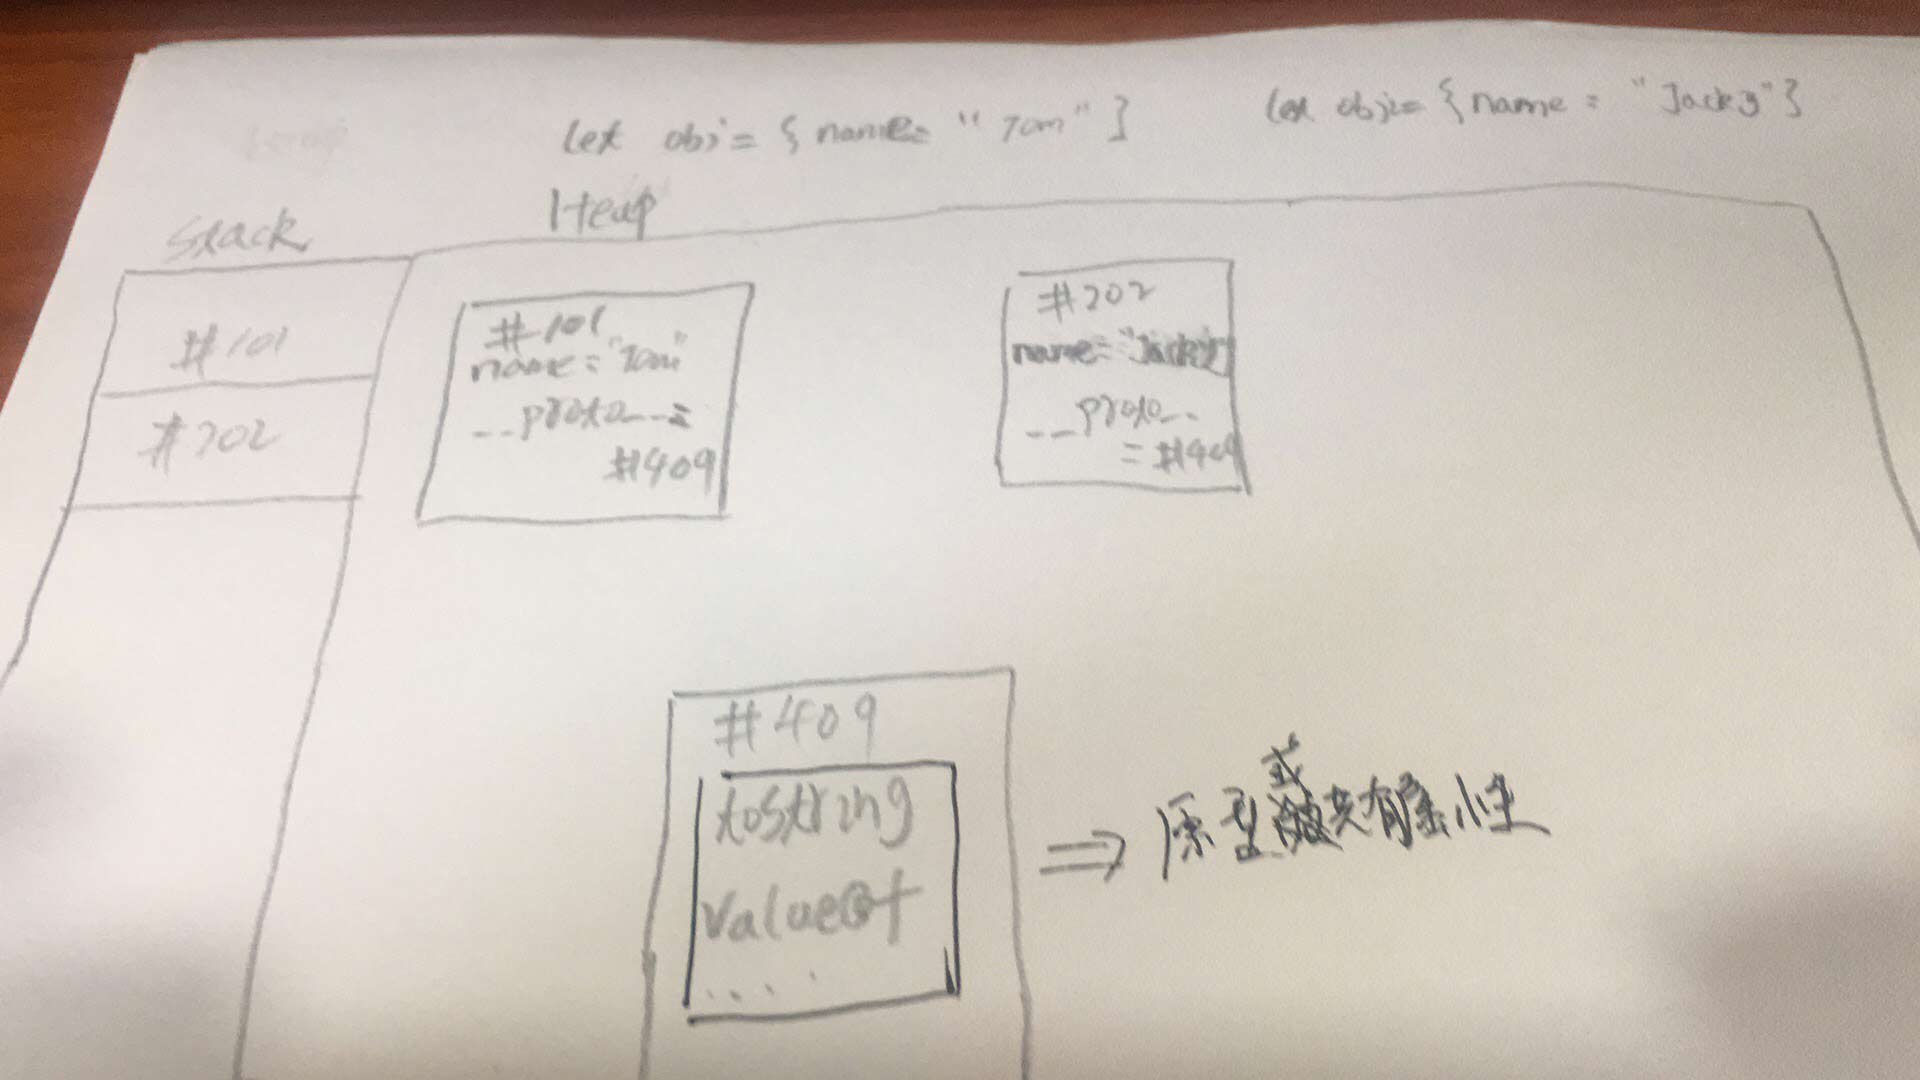 let obj = { name = "Tom" }
let obj = { name = "Jacky" }
Stack
Heap
#101
#202
#101
name = "Tom"
__proto__ =
#409
#202
name = "Jacky"
__proto__
= #409
#409
toString
valueOf
....
⇒ 原型或共有属性